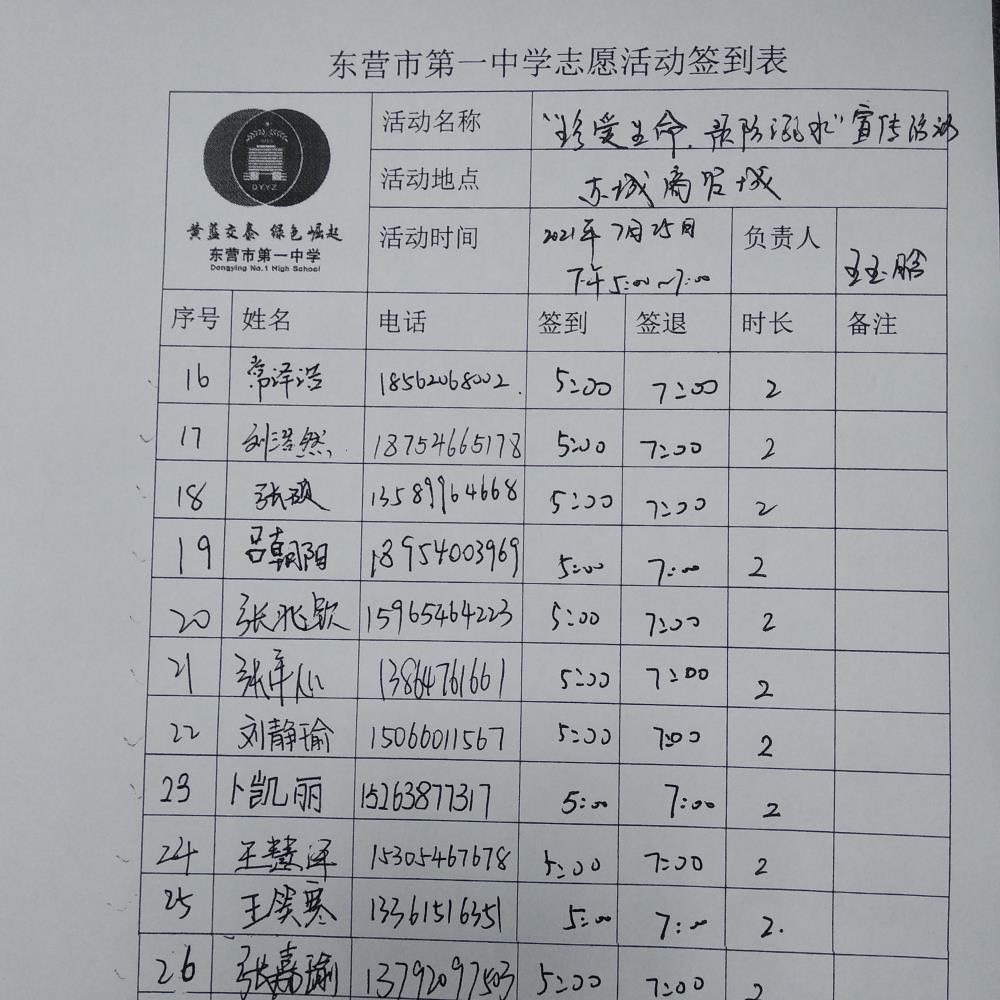 东营市第一中学志愿活动签到表
DYYZ
黄蓝交泰 绿色崛起
东营市第一中学
Dongying No.1 High School
活动名称 "珍爱生命,预防溺水"宣传活动
活动地点 东城商贸城
活动时间 2021年7月25日 下午5:00~7:00 负责人 王玉晗
序号 姓名 电话 签到 签退 时长 备注
16 常泽浩 18562068002 5:00 7:00 2
17 刘浩然 18754665178 5:00 7:00 2
18 张硕 13589964668 5:00 7:00 2
19 吕朝阳 18954003969 5:00 7:00 2
20 张兆钦 15965464223 5:00 7:00 2
21 13864761661 5:00 7:00 2
22 刘静瑜 15066011567 5:00 7:00 2
23 卜凯丽 15263877317 5:00 7:00 2
24 王慧泽 15305467678 5:00 7:00 2
25 王笑寒 13361516351 5:00 7:00 2.
26 张嘉瑜 13792097503 5:00 7:00 2